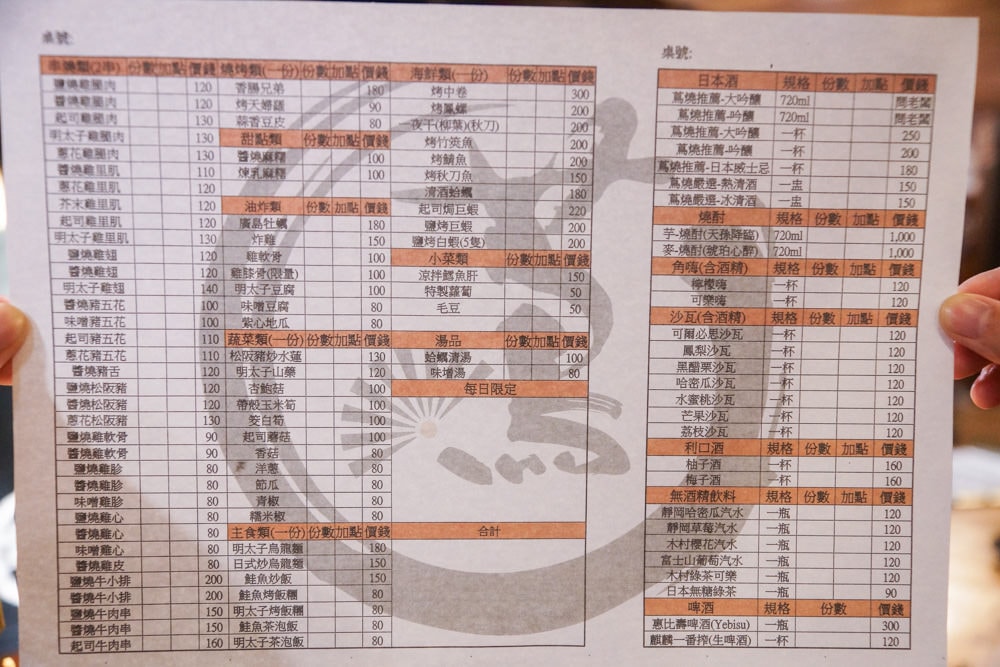 桌號:
串燒類(2串) 份數 加點 價錢
鹽燒雞腿肉 120
醬燒雞腿肉 120
起司雞腿肉 130
明太子雞腿肉 130
蔥花雞腿肉 130
醬燒雞里肌 110
蔥花雞里肌 120
芥末雞里肌 120
起司雞里肌 120
明太子雞里肌 130
鹽燒雞翅 120
醬燒雞翅 120
明太子雞翅 140
醬燒豬五花 100
味噌豬五花 100
起司豬五花 110
蔥花豬五花 110
醬燒豬舌 120
鹽燒松阪豬 120
醬燒松阪豬 120
蔥花松阪豬 130
鹽燒雞軟骨 90
醬燒雞軟骨 90
鹽燒雞胗 80
醬燒雞胗 80
味噌雞胗 80
鹽燒雞心 80
醬燒雞心 80
味噌雞心 80
醬燒雞皮 80
鹽燒牛小排 200
醬燒牛小排 200
鹽燒牛肉串 150
醬燒牛肉串 150
起司牛肉串 160
燒烤類(一份) 份數 加點 價錢
香腸兄弟 180
烤天婦羅 90
蒜香豆皮 80
甜點類 份數 加點 價錢
醬燒麻糬 100
煉乳麻糬 100
油炸類 份數 加點 價錢
廣島牡蠣 180
炸雞 150
雞軟骨 100
雞膝骨(限量) 100
明太子豆腐 100
味噌豆腐 80
紫心地瓜 80
蔬菜類(一份) 份數 加點 價錢
松阪豬炒水蓮 130
明太子山藥 120
杏鮑菇 100
帶殼玉米筍 100
筊白筍 100
起司蘑菇 100
香菇 80
洋蔥 80
節瓜 80
青椒 80
糯米椒 80
主食類(一份) 份數 加點 價錢
明太子烏龍麵 180
日式炒烏龍麵 150
鮭魚炒飯 150
鮭魚烤飯糰 80
明太子烤飯糰 80
鮭魚茶泡飯 80
明太子茶泡飯 80
海鮮類(一份) 份數 加點 價錢
烤中卷 300
烤鳳螺 200
一夜干(柳葉)(秋刀) 200
烤竹筴魚 200
烤鯖魚 200
烤秋刀魚 150
清酒蛤蠣 180
起司焗巨蝦 220
鹽烤巨蝦 200
鹽烤白蝦(5隻) 200
小菜類 份數 加點 價錢
涼拌鱈魚肝 150
特製蘿蔔 50
毛豆 50
湯品 份數 加點 價錢
蛤蠣清湯 100
味增湯 80
每日限定
合計
桌號:
日本酒 規格 份數 加點 價錢
蔦燒推薦-大吟釀 720ml 問老闆
蔦燒推薦-吟釀 720ml 問老闆
蔦燒推薦-大吟釀 一杯 250
蔦燒推薦-吟釀 一杯 200
蔦燒推薦-日本威士忌 一杯 180
蔦燒嚴選-熱清酒 一盅 150
蔦燒嚴選-冰清酒 一盅 150
燒酎 規格 份數 加點 價錢
芋-燒酎(天孫降臨) 720ml 1,000
麥-燒酎(琥珀心醉) 720ml 1,000
角嗨(含酒精) 規格 份數 加點 價錢
檸檬嗨 一杯 120
可樂嗨 一杯 120
沙瓦(含酒精) 規格 份數 加點 價錢
可爾必思沙瓦 一杯 120
鳳梨沙瓦 一杯 120
黑醋栗沙瓦 一杯 120
哈密瓜沙瓦 一杯 120
水蜜桃沙瓦 一杯 120
芒果沙瓦 一杯 120
荔枝沙瓦 一杯 120
利口酒 規格 份數 加點 價錢
柚子酒 一杯 160
梅子酒 一杯 160
無酒精飲料 規格 份數 加點 價錢
靜岡哈密瓜汽水 一瓶 120
靜岡草莓汽水 一瓶 120
木村櫻花汽水 一瓶 120
富士山葡萄汽水 一瓶 120
木村綠茶可樂 一瓶 120
日本無糖綠茶 一瓶 90
啤酒 規格 份數 價錢
惠比壽啤酒(Yebisu) 一瓶 300
麒麟一番搾(生啤酒) 一杯 120